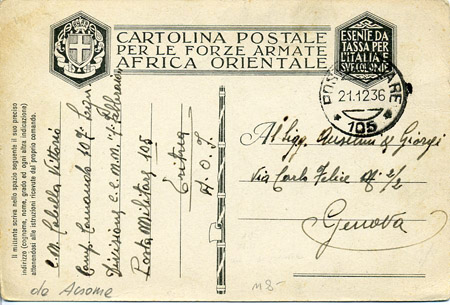 CARTOLINA POSTALE
PER LE FORZE ARMATE
AFRICA ORIENTALE
ESENTE DA
TASSA PER
L'ITALIA E
SUE COLONIE
POSTA MILITARE
21.12.36
* 105 *
Il mittente scriva nello spazio seguente il suo preciso
indirizzo (cognome, nome, grado ed ogni altra indicazione)
attenendosi alle istruzioni ricevute dal proprio comando.
C.N. Vittorio
Comp. Comando 107ª Legi
Divisione CC.NN. 1º Febbraio
Posta Militare 105
Eritrea
A.O.I.
Al Sigg. Anselmi & Giorgi
Via Carlo Felice Nº 2/2
Genova
da
M8-